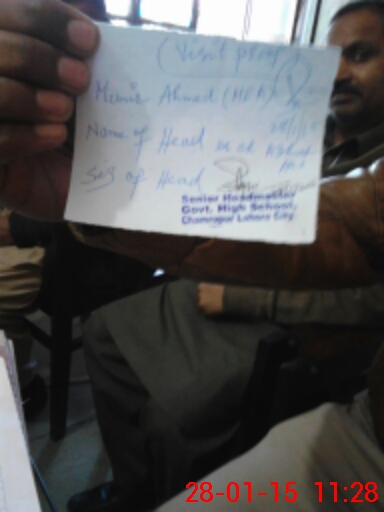 (Visit proof)
Munir Ahmed (MEA)
Name of Head
Sig of Head
Senior Headmaster
Govt. High School,
Lahore City
28-01-15 11:28